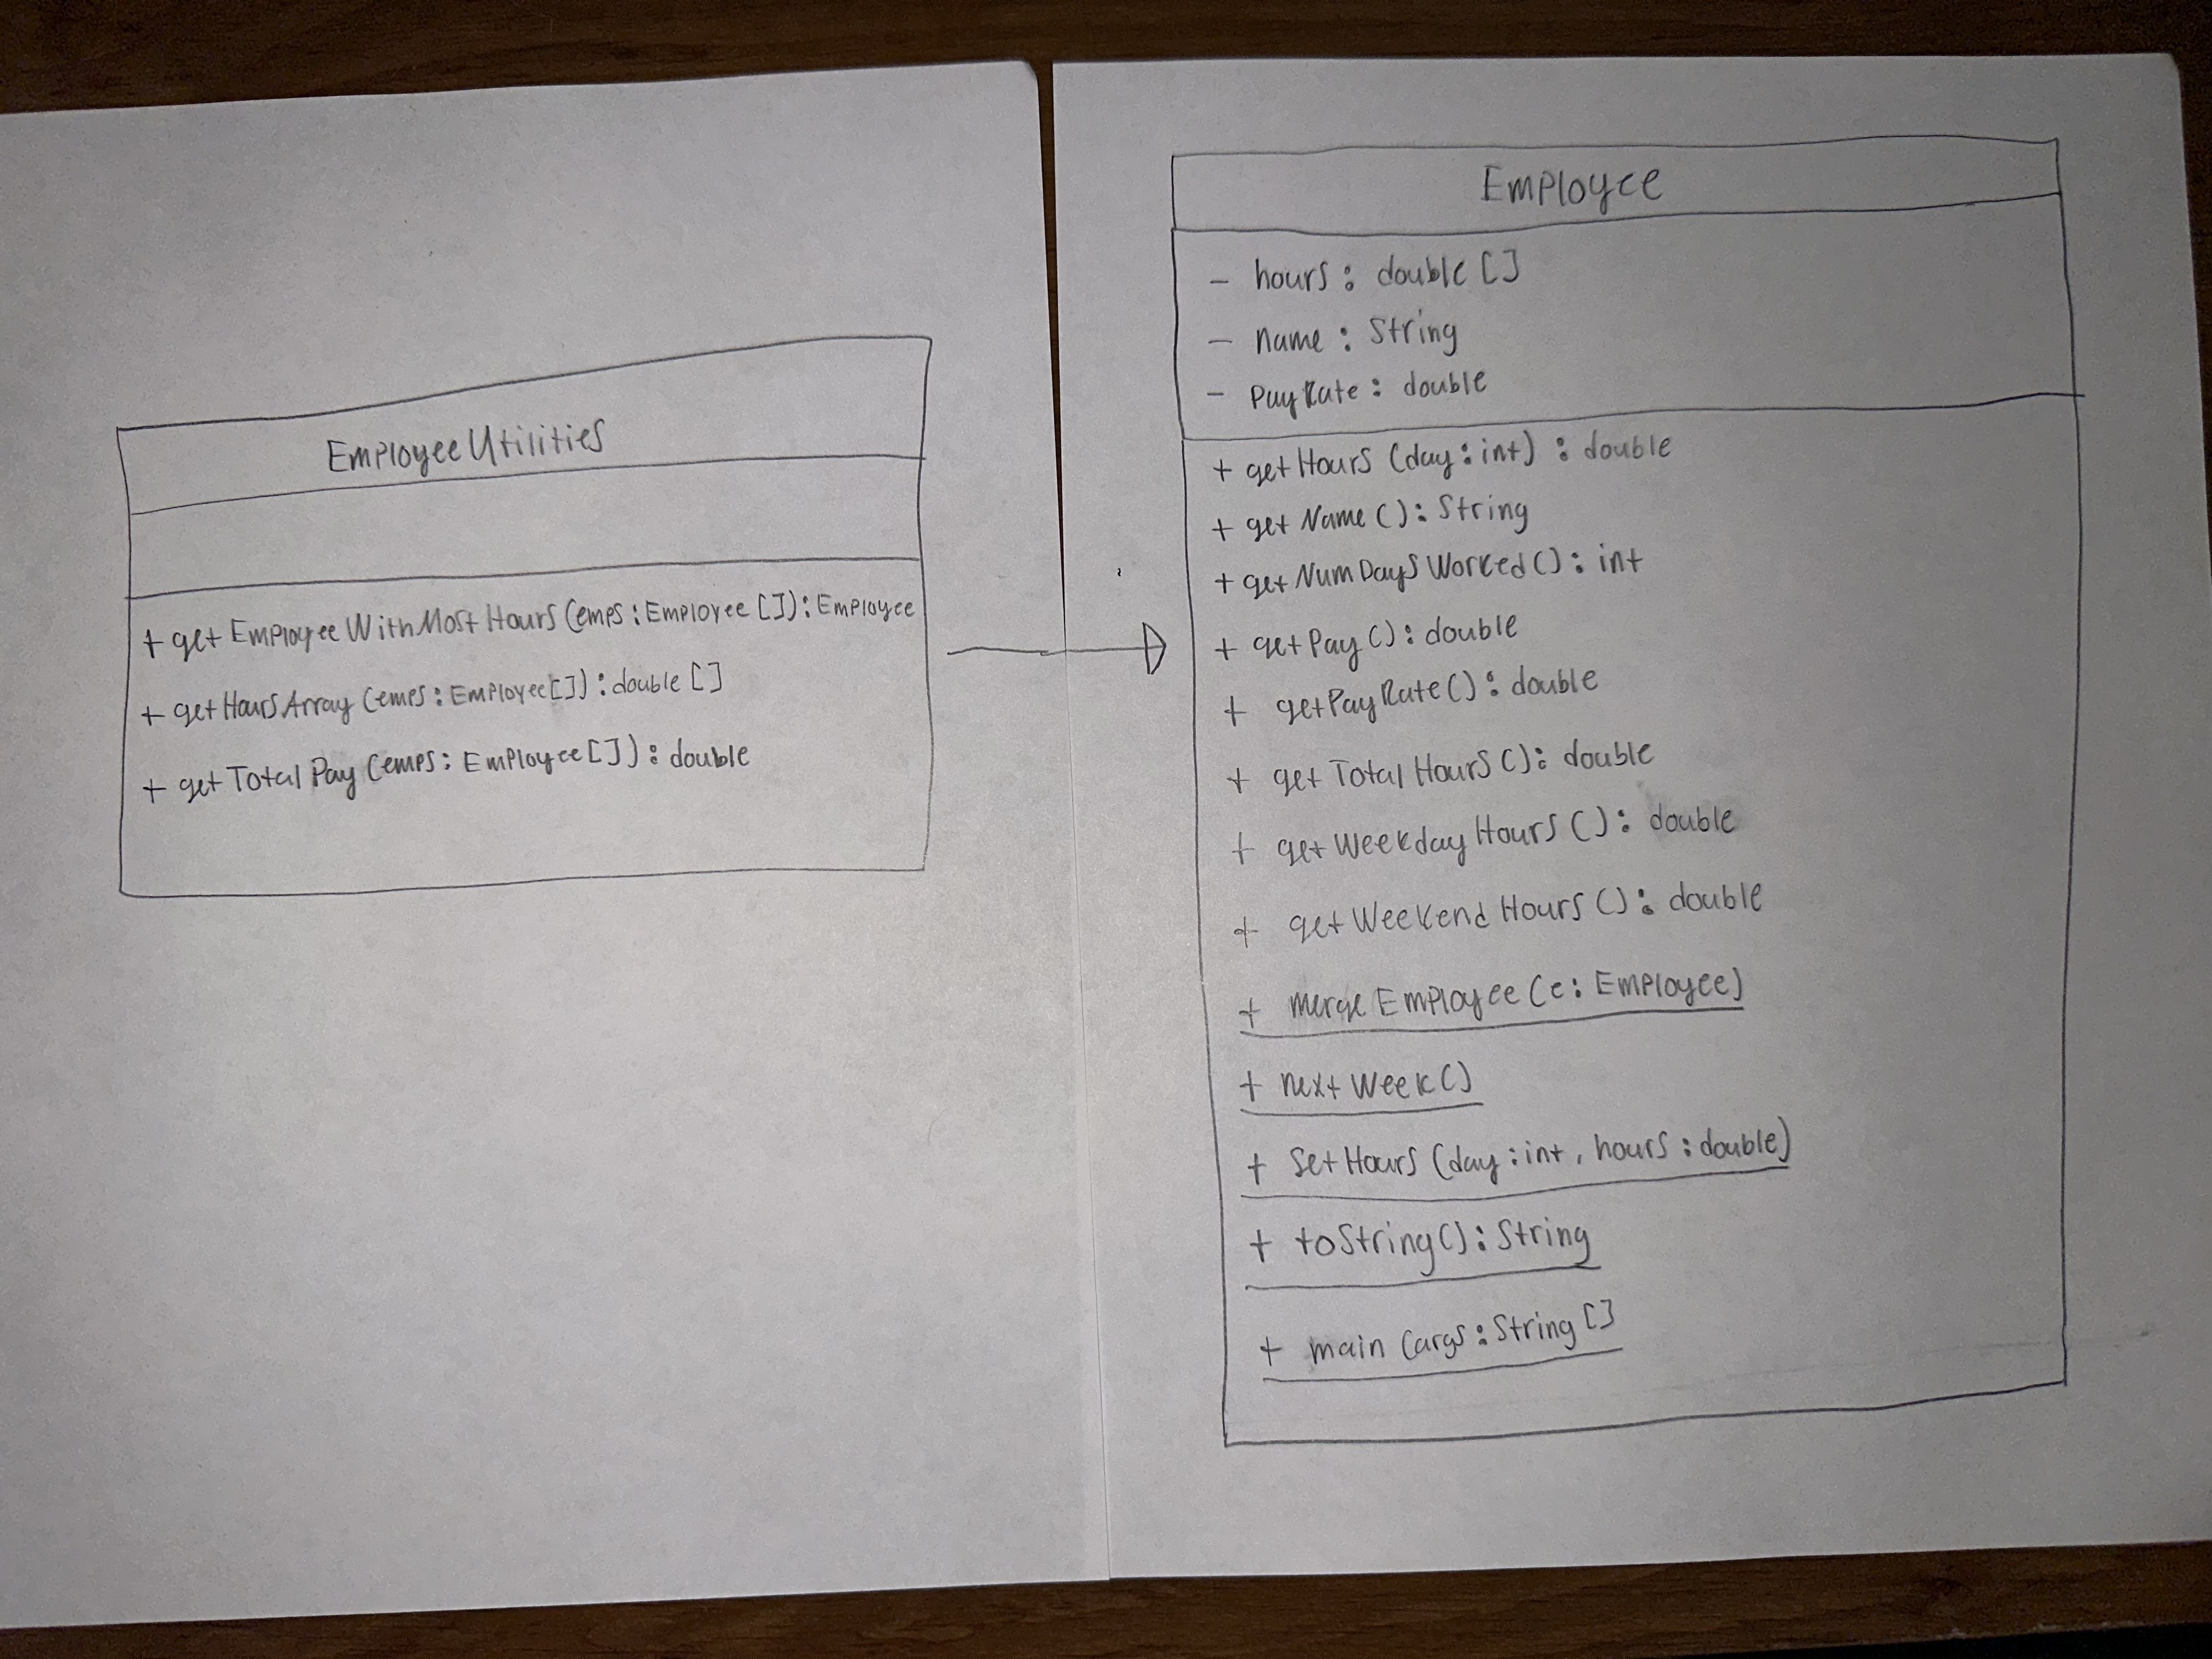 EmployeeUtilities
+ getEmployeeWithMostHours(emps:Employee[]):Employee
+ getHoursArray(emps:Employee[]):double[]
+ getTotalPay(emps:Employee[]):double
Employee
- hours: double[]
- name: String
- PayRate: double
+ getHours(day:int): double
+ getName(): String
+ getNumDaysWorked(): int
+ getPay(): double
+ getPayRate(): double
+ getTotalHours(): double
+ getWeekdayHours(): double
+ getWeekendHours(): double
+ mergeEmployee(e: Employee)
+ nextWeek()
+ setHours(day:int, hours:double)
+ toString(): String
+ main(args:String[]